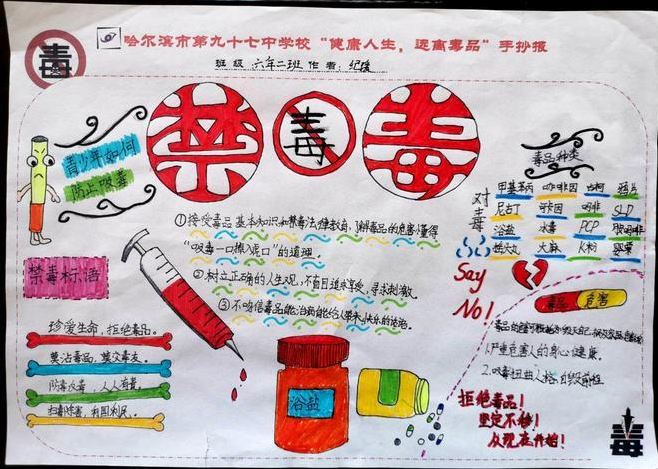 毒
哈尔滨市第九十七中学校“健康人生，远离毒品”手抄报
班级 六年二班 作者：纪瑗
禁 毒 毒
青少年如何
防止吸毒
①接受毒品基本知识和禁毒法律教育，了解毒品的危害，懂得
“吸毒一口，掉入虎口”的道理。
②树立正确的人生观，不盲目追求享受，寻求刺激。
③不听信毒品能治病
毒品种类
对毒
甲基苯丙 咖啡因 古柯 鸦片
尼古丁 卡因 吗啡
浴盐 冰毒 PCP
摇头丸 大麻 K粉 罂粟
Say
No!
禁毒标语
珍爱生命，拒绝毒品。
莫沾毒品，莫交毒友。
防毒反毒，人人有责。
扫毒除害，利国利民。
浴盐
毒品 危害
1.严重危害人的身心健康。
2.吸毒扭曲人格，自毁前程
拒绝毒品！
坚定不移！
从现在开始！
毒